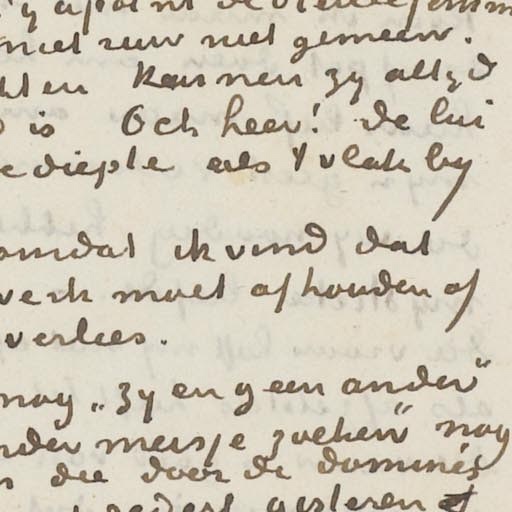 niet ruw niet gemeen.
kunnen zy altyd
is Och heer! de lui
diepte als 't vlak by
omdat ik vind dat
werk moet afhouden of
verlies.
nog „zy en geen ander”
ander meisje zoeken” nog
die door de dominés
gisteren